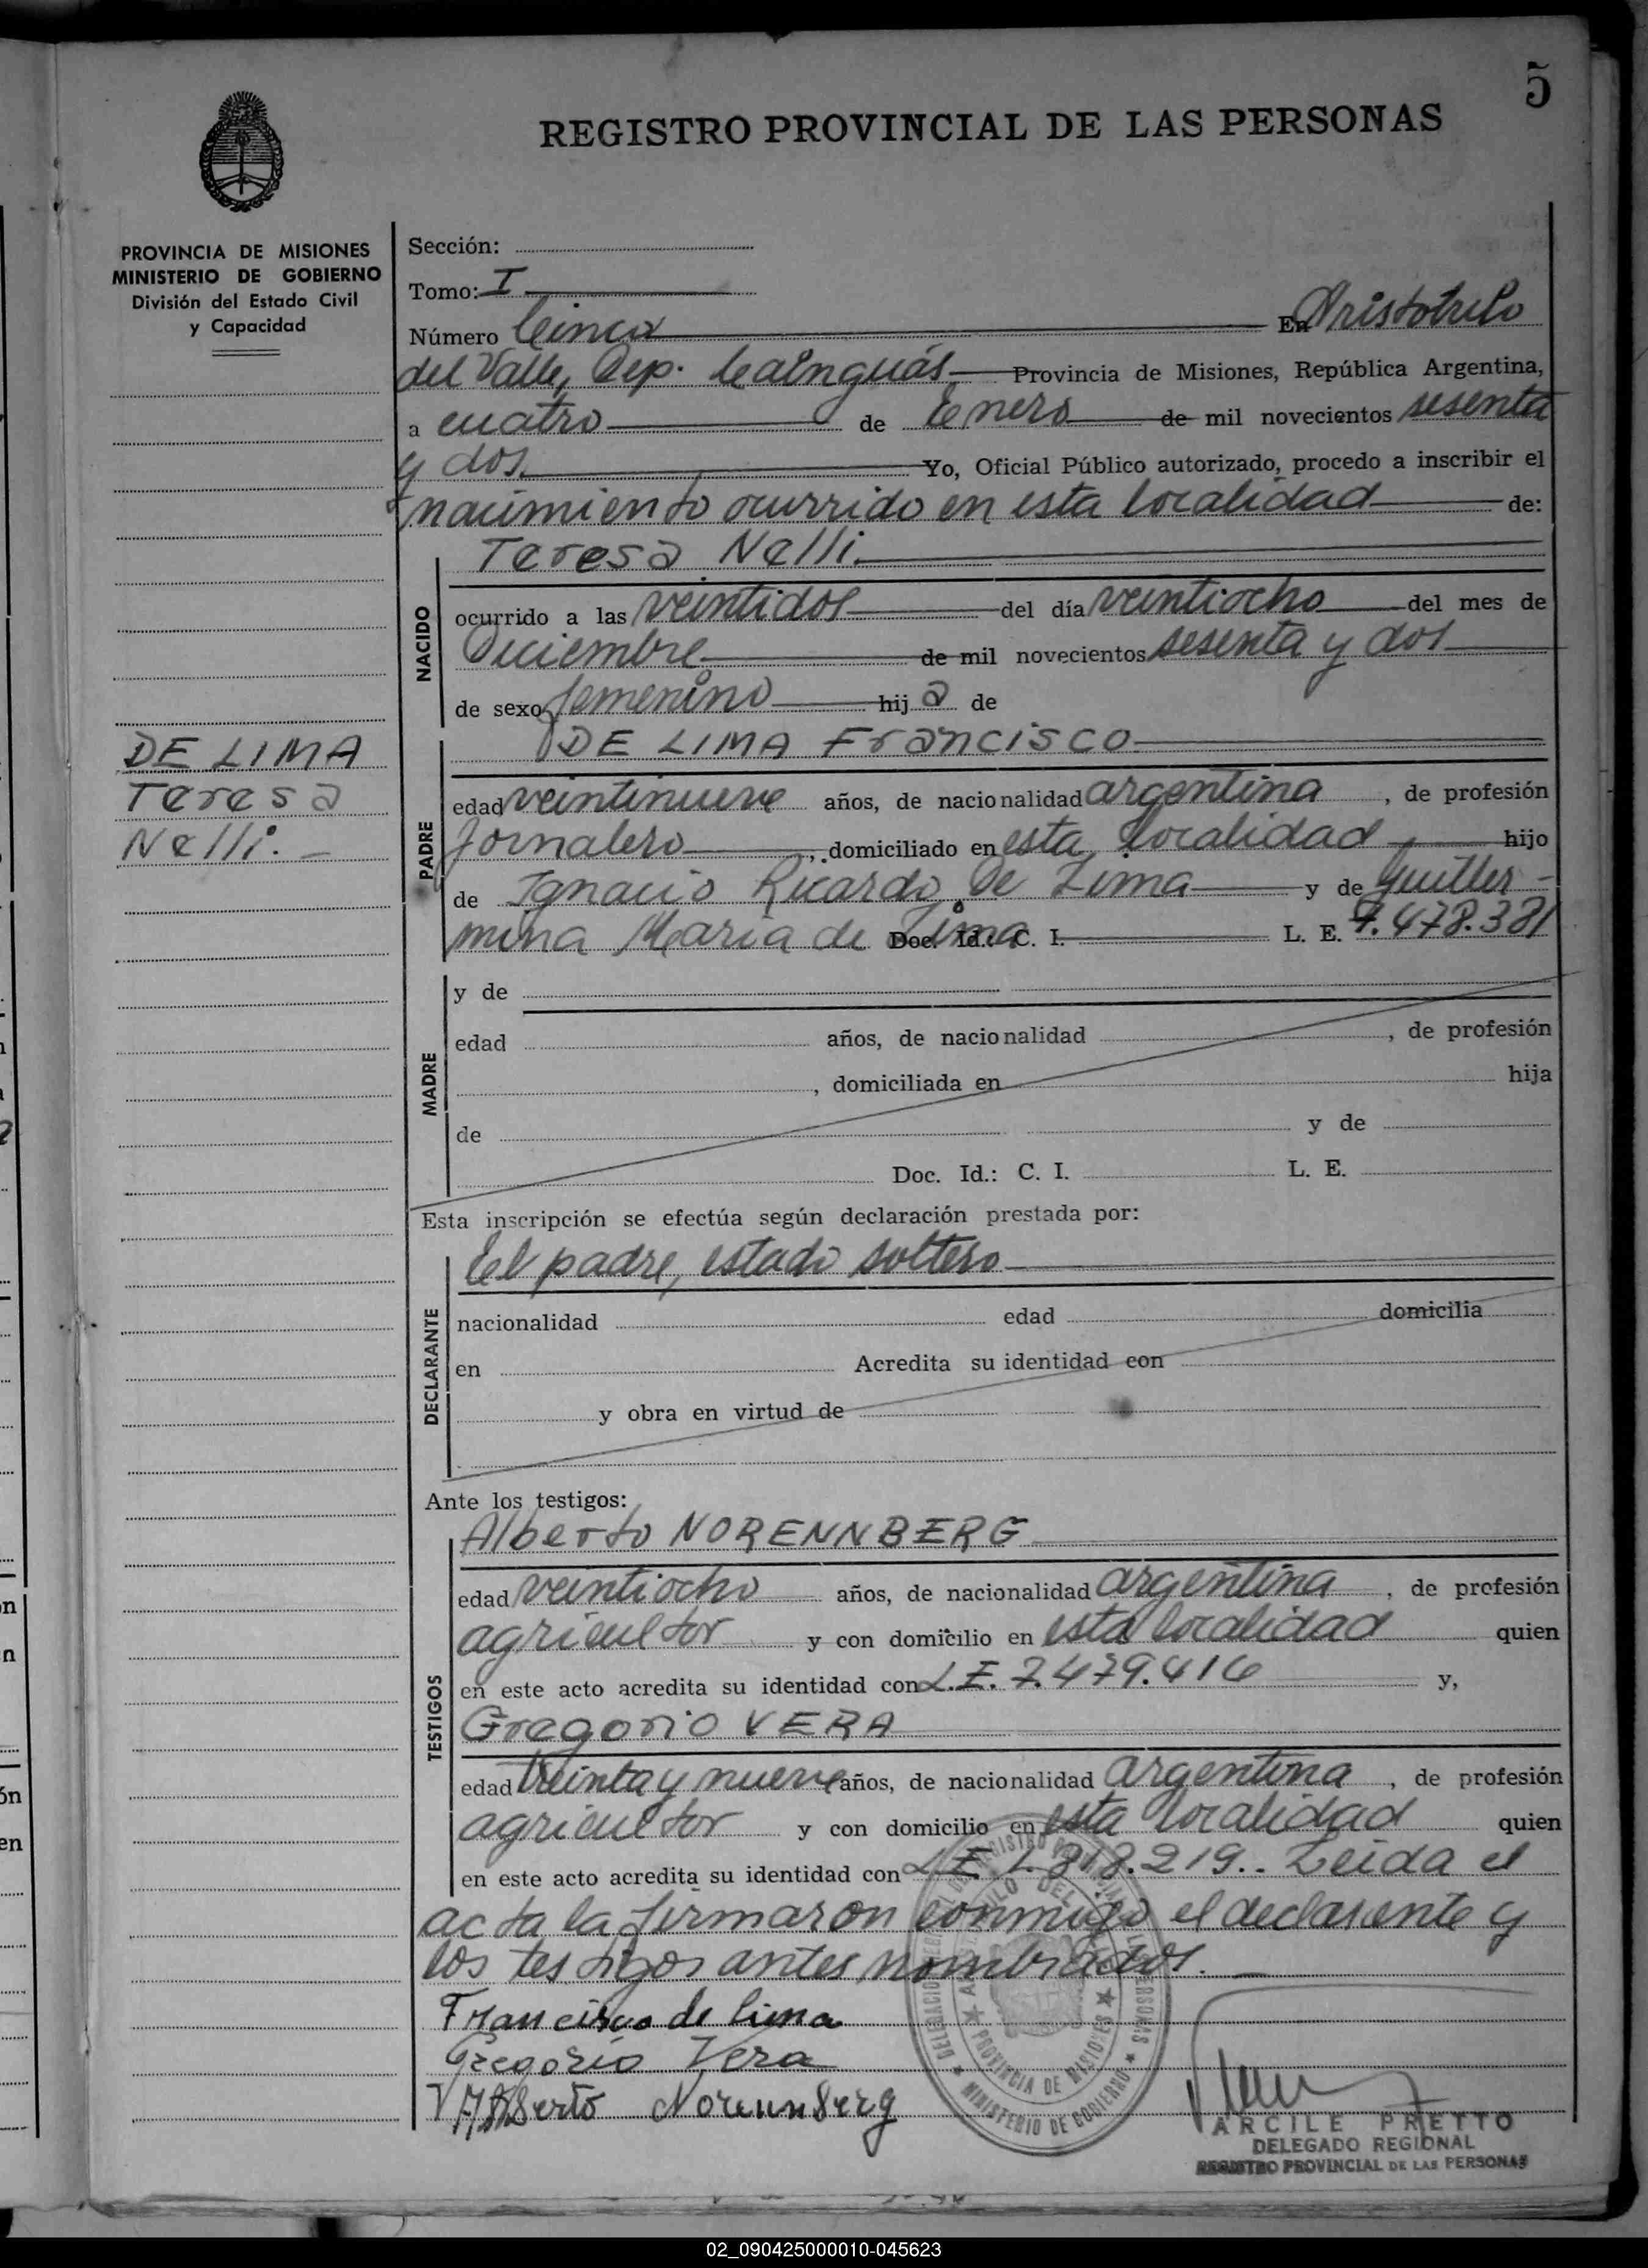 5
REGISTRO PROVINCIAL DE LAS PERSONAS
PROVINCIA DE MISIONES
MINISTERIO DE GOBIERNO
División del Estado Civil
y Capacidad
DE LIMA
Teresa
Nelli.
Sección:
Tomo: I
Número Cinco En Aristóbulo
del Valle, Dep. Cainguás Provincia de Misiones, República Argentina,
a cuatro de Enero de mil novecientos sesenta
y dos. Yo, Oficial Público autorizado, procedo a inscribir el
nacimiento ocurrido en esta localidad de:
NACIDO
Teresa Nelli.
ocurrido a las veintidos del día veintiocho del mes de
Diciembre de mil novecientos sesenta y dos
de sexo femenino hija de
PADRE
DE LIMA Francisco
edad veintinueve años, de nacionalidad argentina, de profesión
Jornalero, domiciliado en esta localidad hijo
de Ignacio Ricardo De Lima y de Guiller-
mina Maria de Lima Doc. Id.: C. I. L. E. 7.478.381
MADRE
y de
edad años, de nacionalidad , de profesión
, domiciliada en hija
de y de
Doc. Id.: C. I. L. E.
Esta inscripción se efectúa según declaración prestada por:
DECLARANTE
El padre, estado soltero
nacionalidad edad domicilia
en Acredita su identidad con
y obra en virtud de
Ante los testigos:
TESTIGOS
Alberto NORENNBERG
edad veintiocho años, de nacionalidad argentina, de profesión
agricultor y con domicilio en esta localidad quien
en este acto acredita su identidad con L.E. 7.479.416 y,
Gregorio VERA
edad treinta y nueve años, de nacionalidad argentina, de profesión
agricultor y con domicilio en esta localidad quien
en este acto acredita su identidad con L.E. Leida el
acta la firmaron conmigo el declarante y
los testigos antes nombrados.
Francisco de Lima
Gregorio Vera
Alberto Norennberg
PROVINCIA DE MISIONES
MINISTERIO DE GOBIERNO
ARCILE PRETTO
DELEGADO REGIONAL
REGISTRO PROVINCIAL DE LAS PERSONAS
02_090425000010-045623